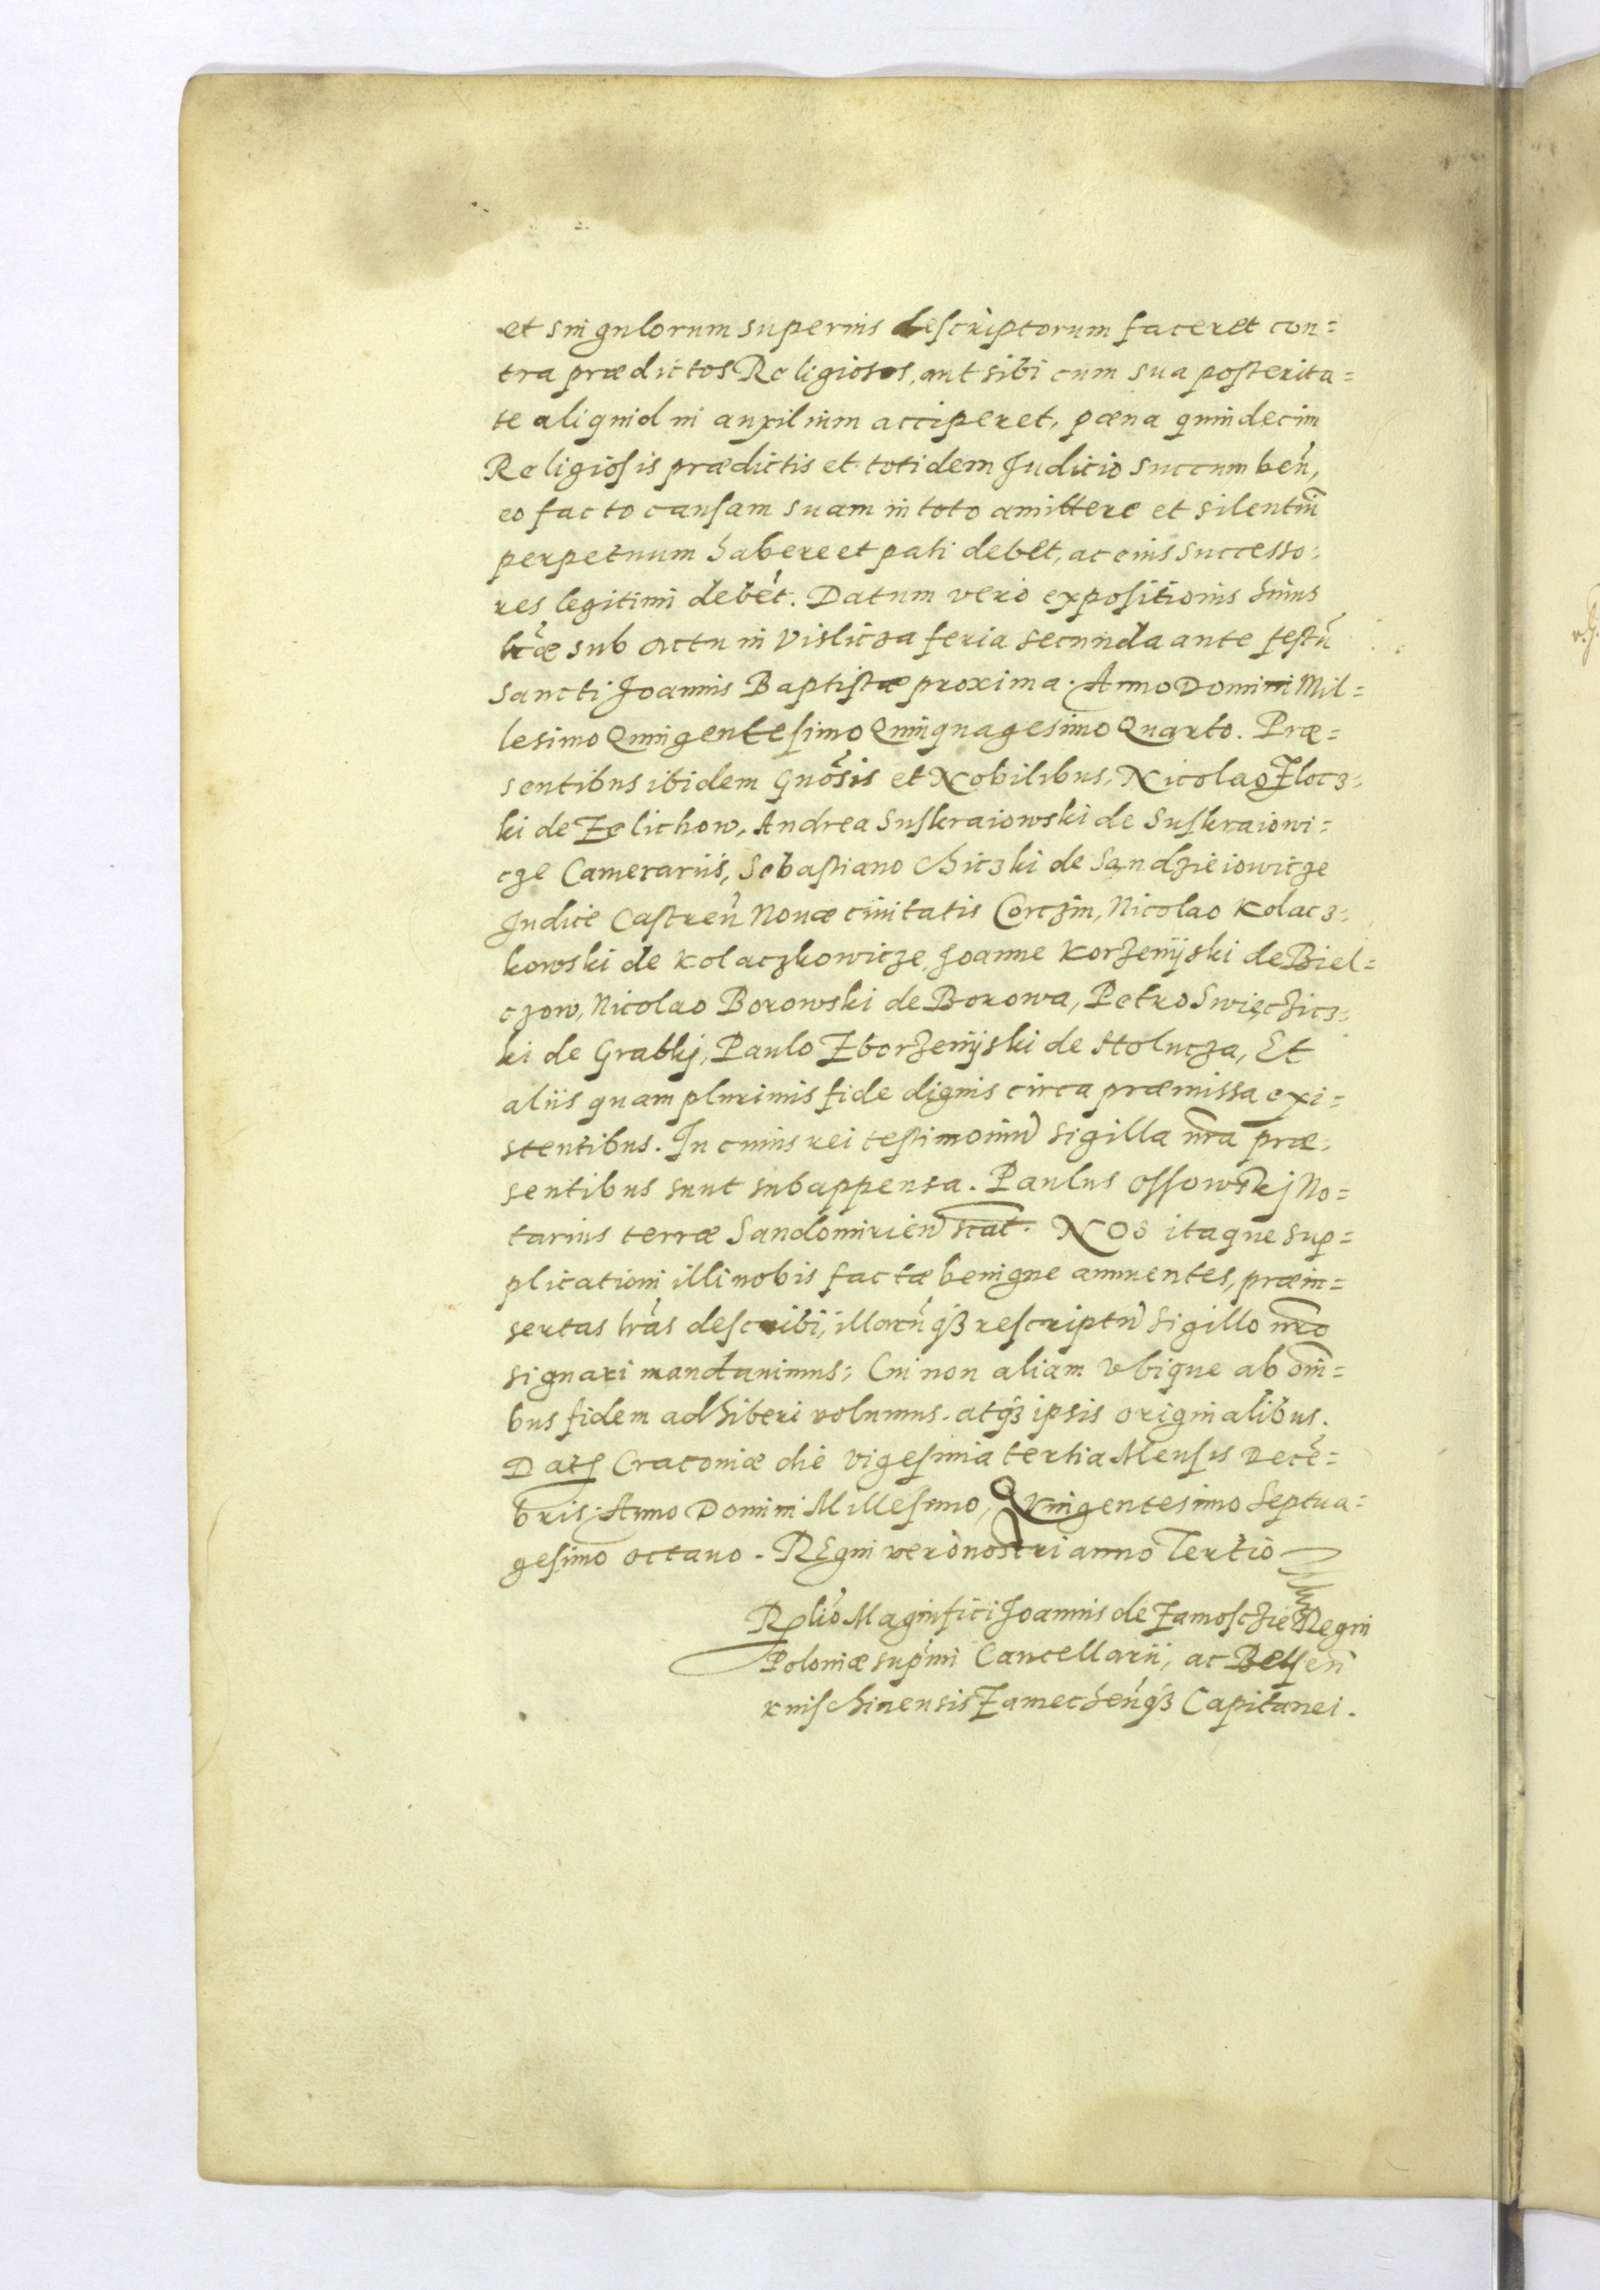 et singulorum superius descriptorum faceret con=
tra prædictos Religiosos, aut sibi cum sua posterita=
te aliquid in auxilium acciperet, pæna quindecim
Religiosis prædictis et totidem Judicio succumbeń,
eo facto causam suam in toto amittere et silentiū
perpetuum habere et pati debet, ac eius successo=
res legitimi debēt. Datum vero expositionis huius
lræ sub actu in Vislicza feria secunda ante festū
Sancti Joannis Baptistæ proxima. Anno Domini Mil=
lesimo Quingentesimo Quinquagesimo Quarto. Præ=
sentibus ibidem Gnōsis et Nobilibus, Nicolao Zlocz=
ki de Zelichow, Andrea Suskraiowski de Suskraiowi=
cze Camerariis, Sebastiano Chiczki de Sandzieiowicze
Judice Castreń Nouæ ciuitatis Corczin, Nicolao Kolacz=
kowski de Kolaczkowicze, Joanne Korzenÿski de Biel=
czow, Nicolao Borowski de Borowa, Petro Swięczicz=
ki de Grabkj, Paulo Zborzenÿski de Stolucza, Et
aliis quam plurimis fide dignis circa præmissa exi=
stentibus. In cuius rei testimoniū sigilla nra præ=
sentibus sunt subappensa. Paulus Ossowskj No=
tarius terræ Sandomirień scat. NOS itaque sup=
plicationi illi nobis factæ benigne annuentes, præin=
sertas lrās describi, illarūq3 rescriptū sigillo nro
signari mandauimus; Cui non aliam vbique ab omī=
bus fidem adhiberi volumus, atq3 ipsis originalibus.
Dat Cracouiæ die vigesima tertia Mensis Decē=
bris, Anno Domini Millesimo, Quingentesimo Septua=
gesimo octauo. REgni vero nostri anno Tertio
Rlō Magnifici Joannis de Zamosczie Regni
Poloniæ supmi Cancellarii, ac Belseń
Knischinensis Zamecheńq3 Capitanei.